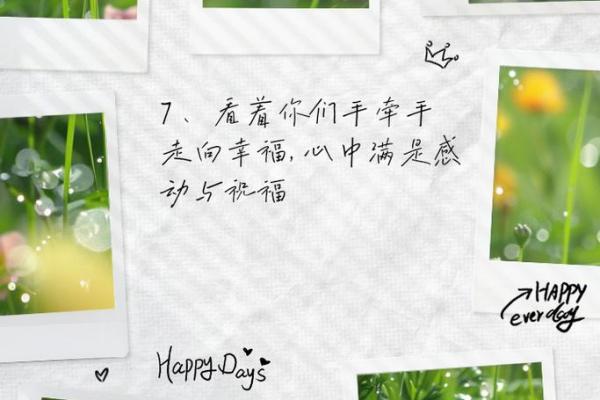 7、看着你们手牵手
走向幸福,心中满是感
动与祝福
HAPPY
everday
Happy Days